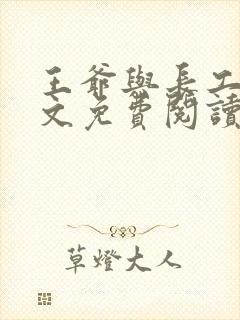 王爺與長工
文免費閱讀
草燈大人